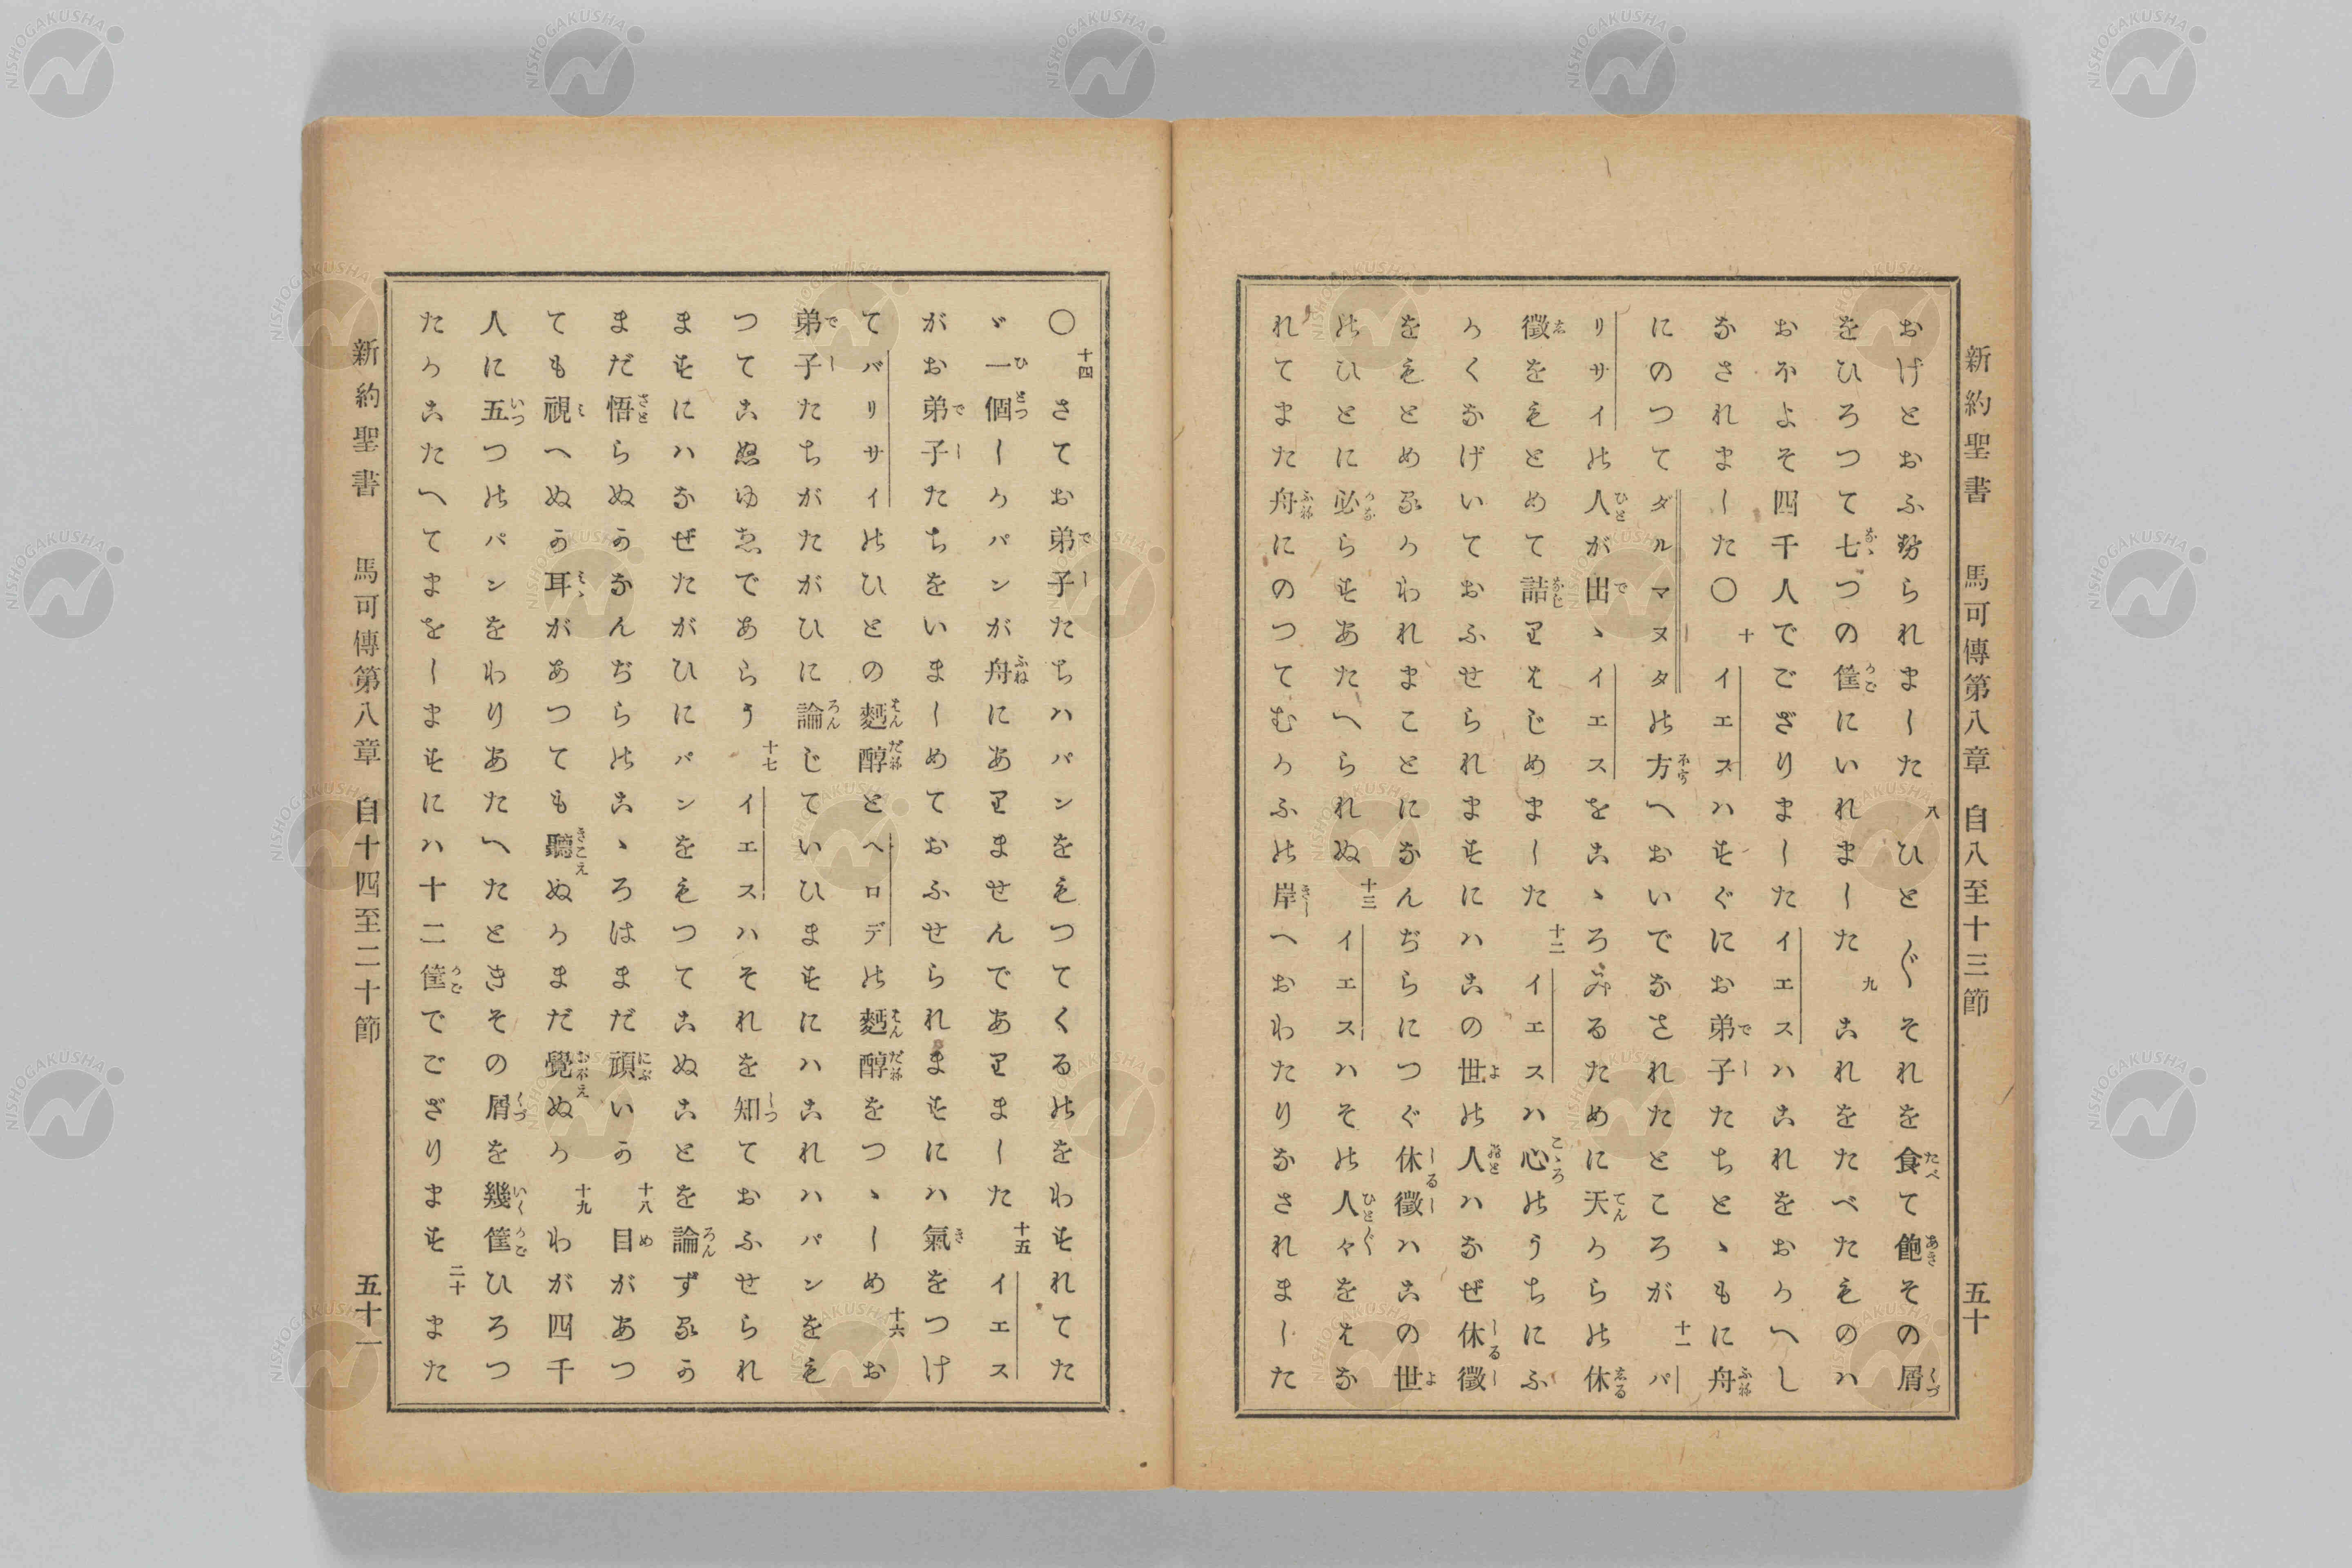 新約聖書 馬可傳第八章 自八至十三節 五十
おげとおふせられました 八 ひと〴〵それを食て飽その屑
をひろつて七つの筐にいれました 九 これをたべたものハ
おほよそ四千人でござりましたイエスハこれをおかへし
なされました〇 十 イエスハすぐにお弟子たちとゝもに舟
にのつてダルマヌタの方へおいでなされたところが 十一 パ
リサイの人が出ゝイエスをこゝろみるために天からの休
徴をもとめて詰りはじめました 十二 イエスハ心のうちにふ
かくなげいておふせられますにハこの世の人ハなぜ休徴
をもとめるかわれまことになんぢらにつぐ休徴ハこの世
のひとに必らずあたへられぬ 十三 イエスハその人々をはな
れてまた舟にのつてむかふの岸へおわたりなされました
〇 十四 さてお弟子たちハパンをもつてくるのをわすれてた
ゞ一個しかパンが舟にありませんでありました 十五 イエス
がお弟子たちをいましめておふせられますにハ氣をつけ
てバリサイのひとの麪醇とヘロデの麪醇をつゝしめ 十六 お
弟子たちがたがひに論じていひますにハこれハパンをも
つてこぬゆゑであらう 十七 イエスハそれを知つておふせられ
ますにハなぜたがひにパンをもつてこぬことを論ずるか
まだ悟らぬかなんぢらのこゝろはまだ頑いか 十八 目があつ
ても視へぬか耳があつても聽ぬかまだ覺ぬか 十九 わが四千
人に五つのパンをわりあたへたときその屑を幾筐ひろつ
たかこたへてまをしますにハ十二筐でござります 二十 また
新約聖書 馬可傳第八章 自十四至二十節 五十一
NISHOGAKUSHA